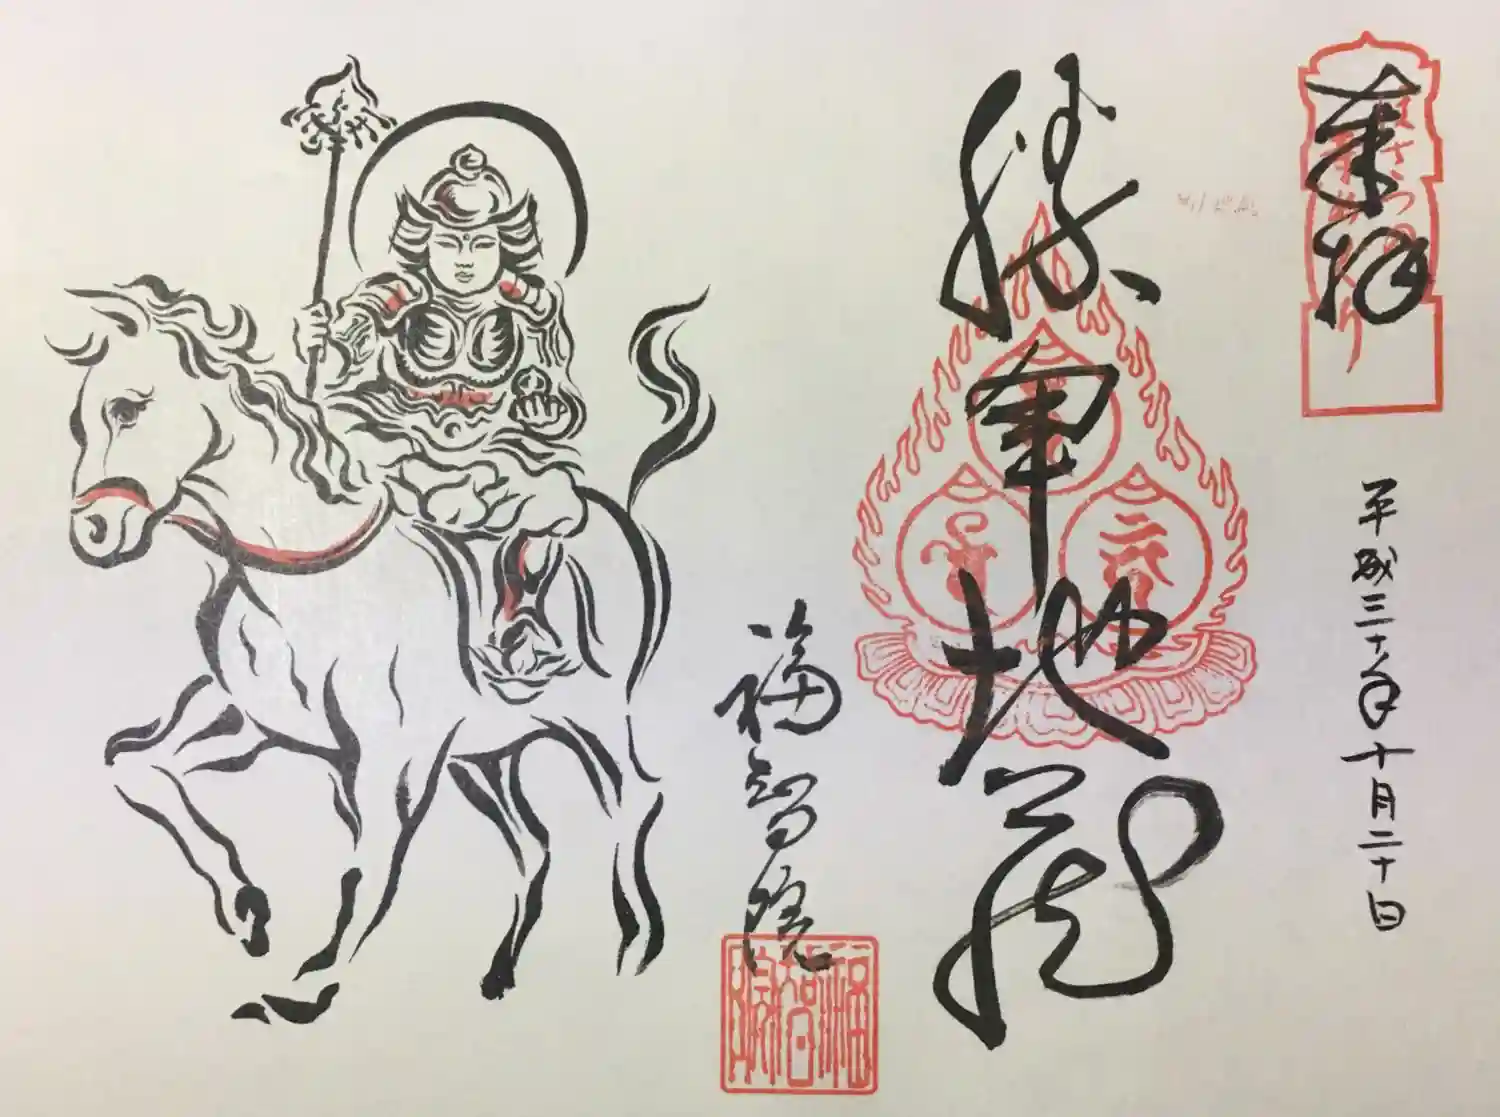 奉拝
平成三十年十月二十日
勝軍地蔵
福智院
福智院